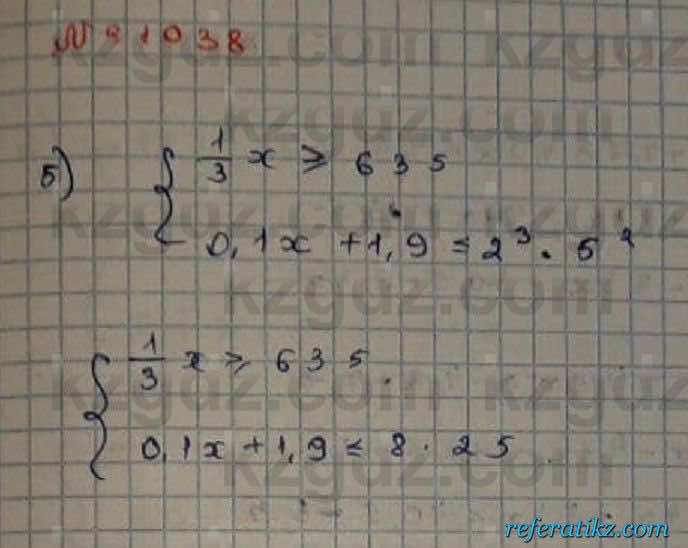 № 1038
5) { 1/3 x ≥ 635
0,1x + 1,9 ≤ 2³ · 5²
{ 1/3 x ≥ 635
0,1x + 1,9 ≤ 8 · 25
kzgdz.com
referatikz.com